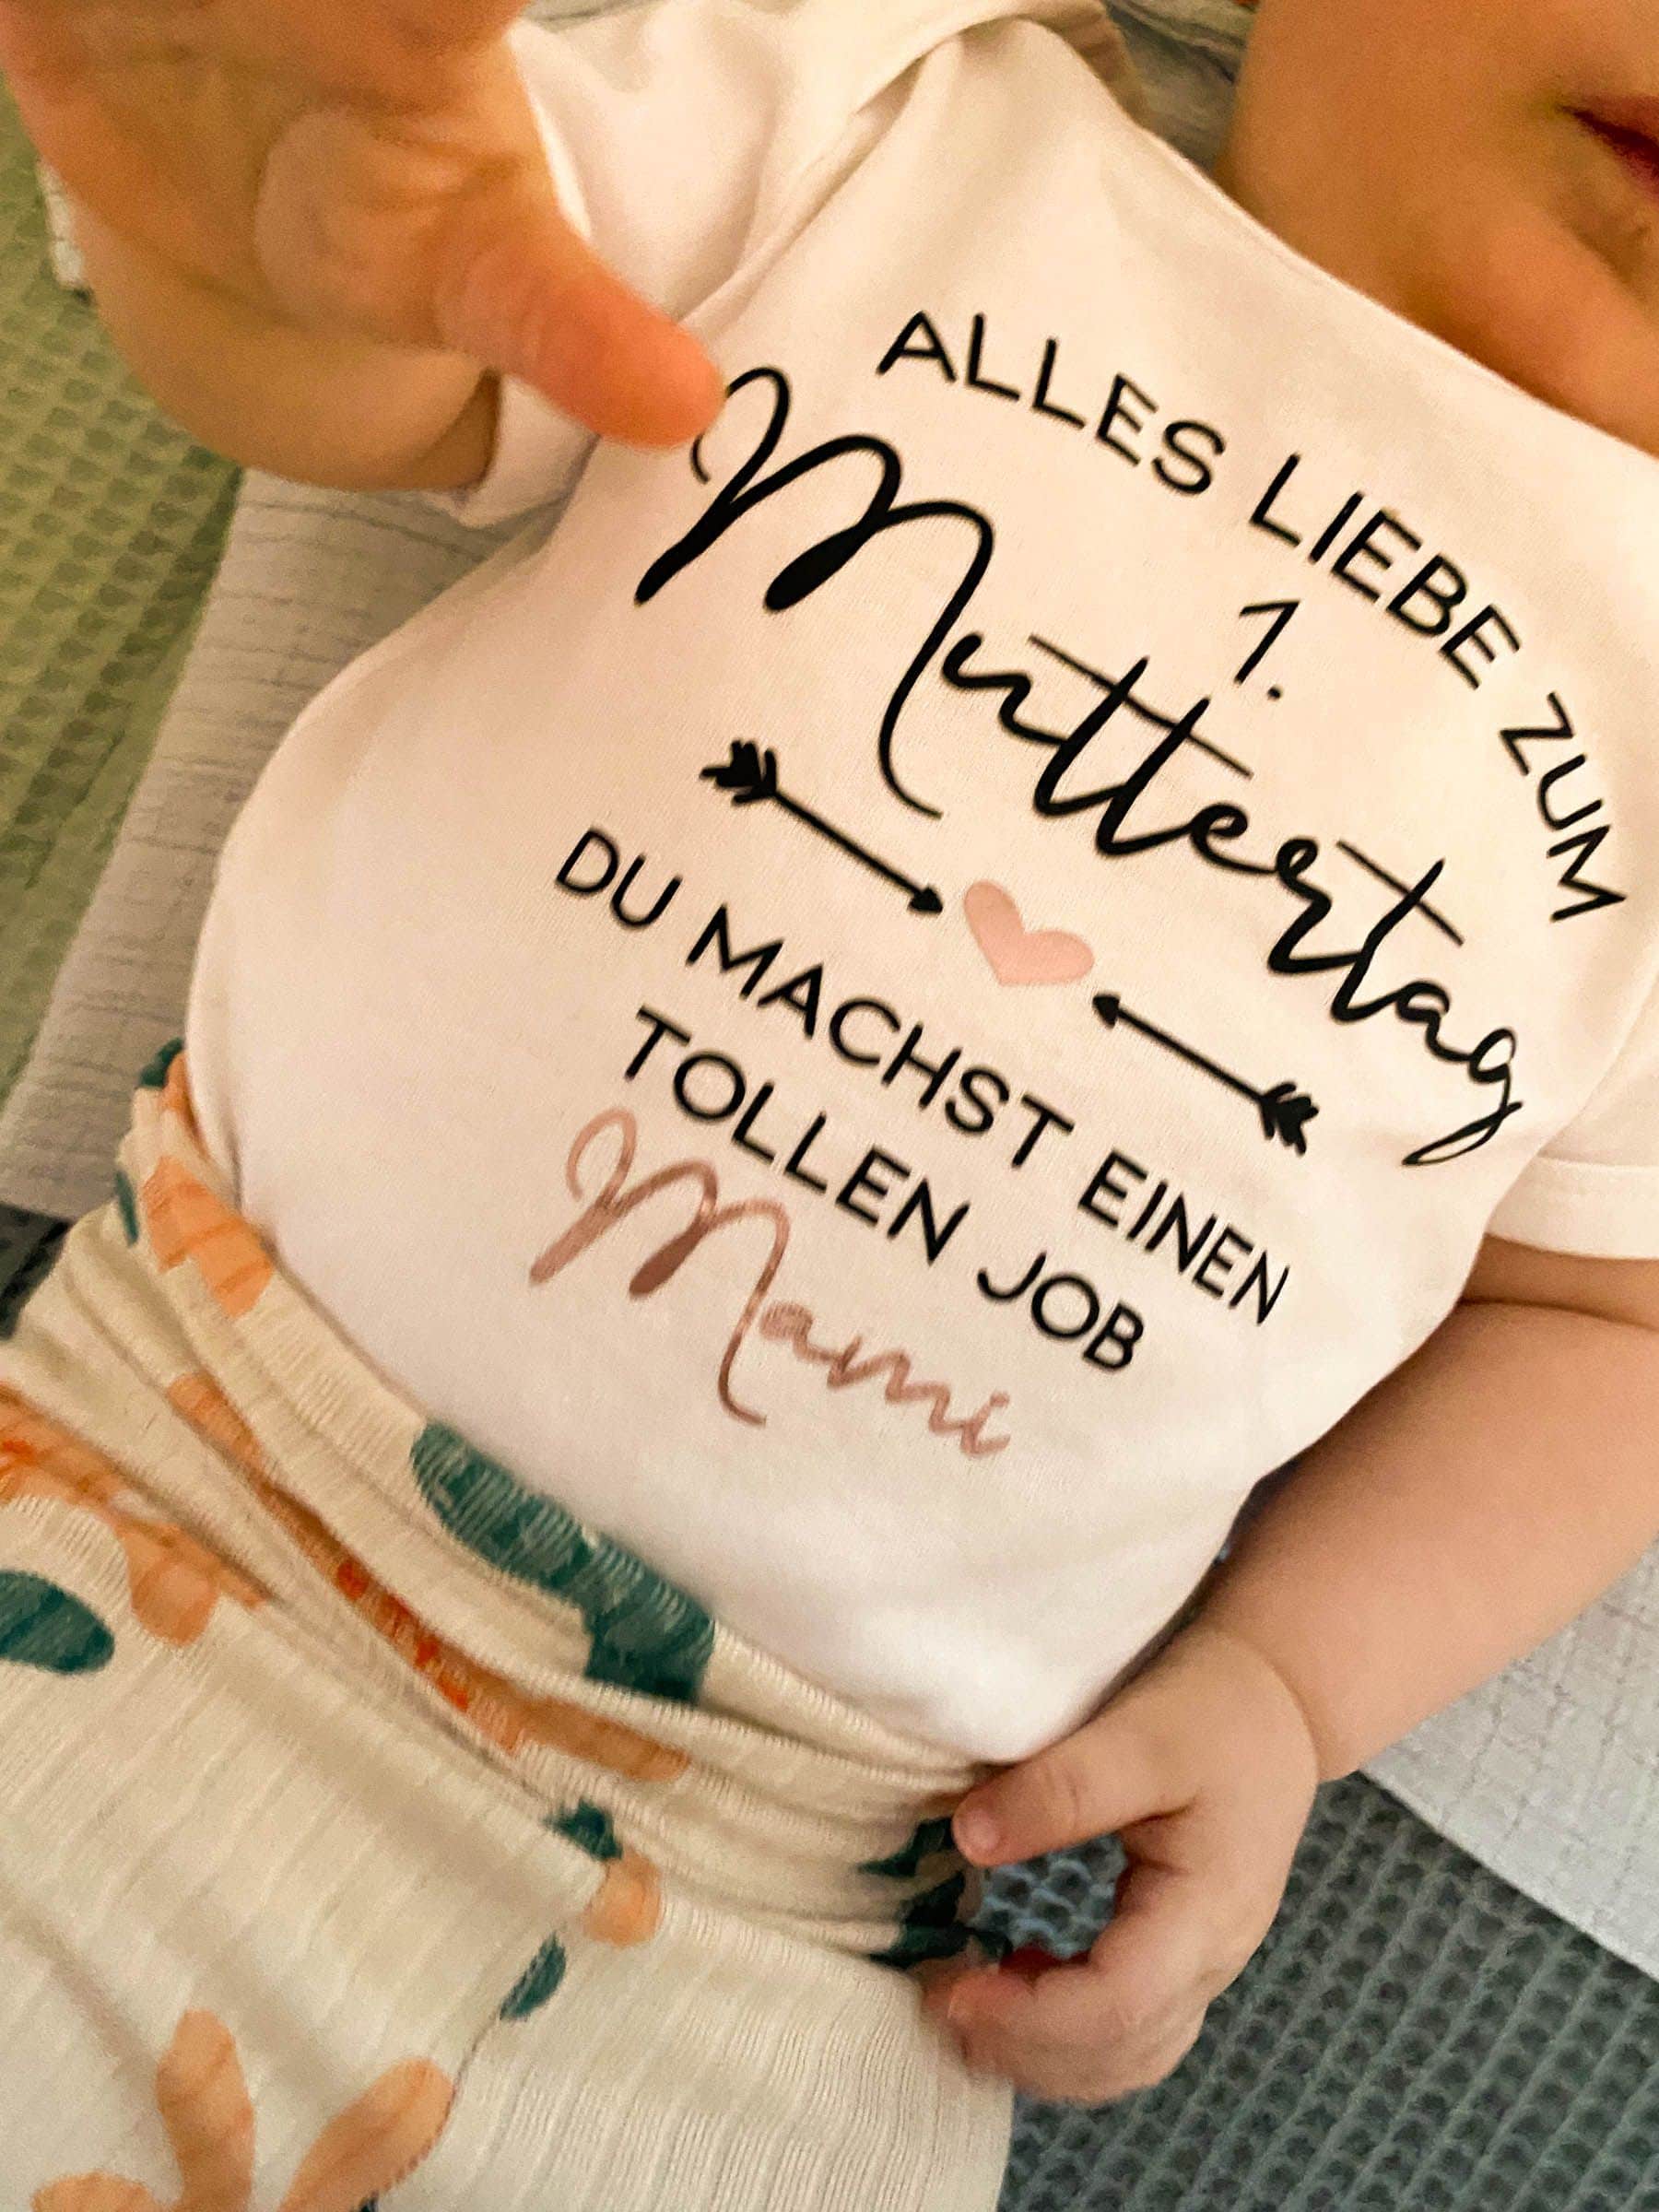 ALLES LIEBE ZUM
1.
Muttertag
DU MACHST EINEN
TOLLEN JOB
Mami